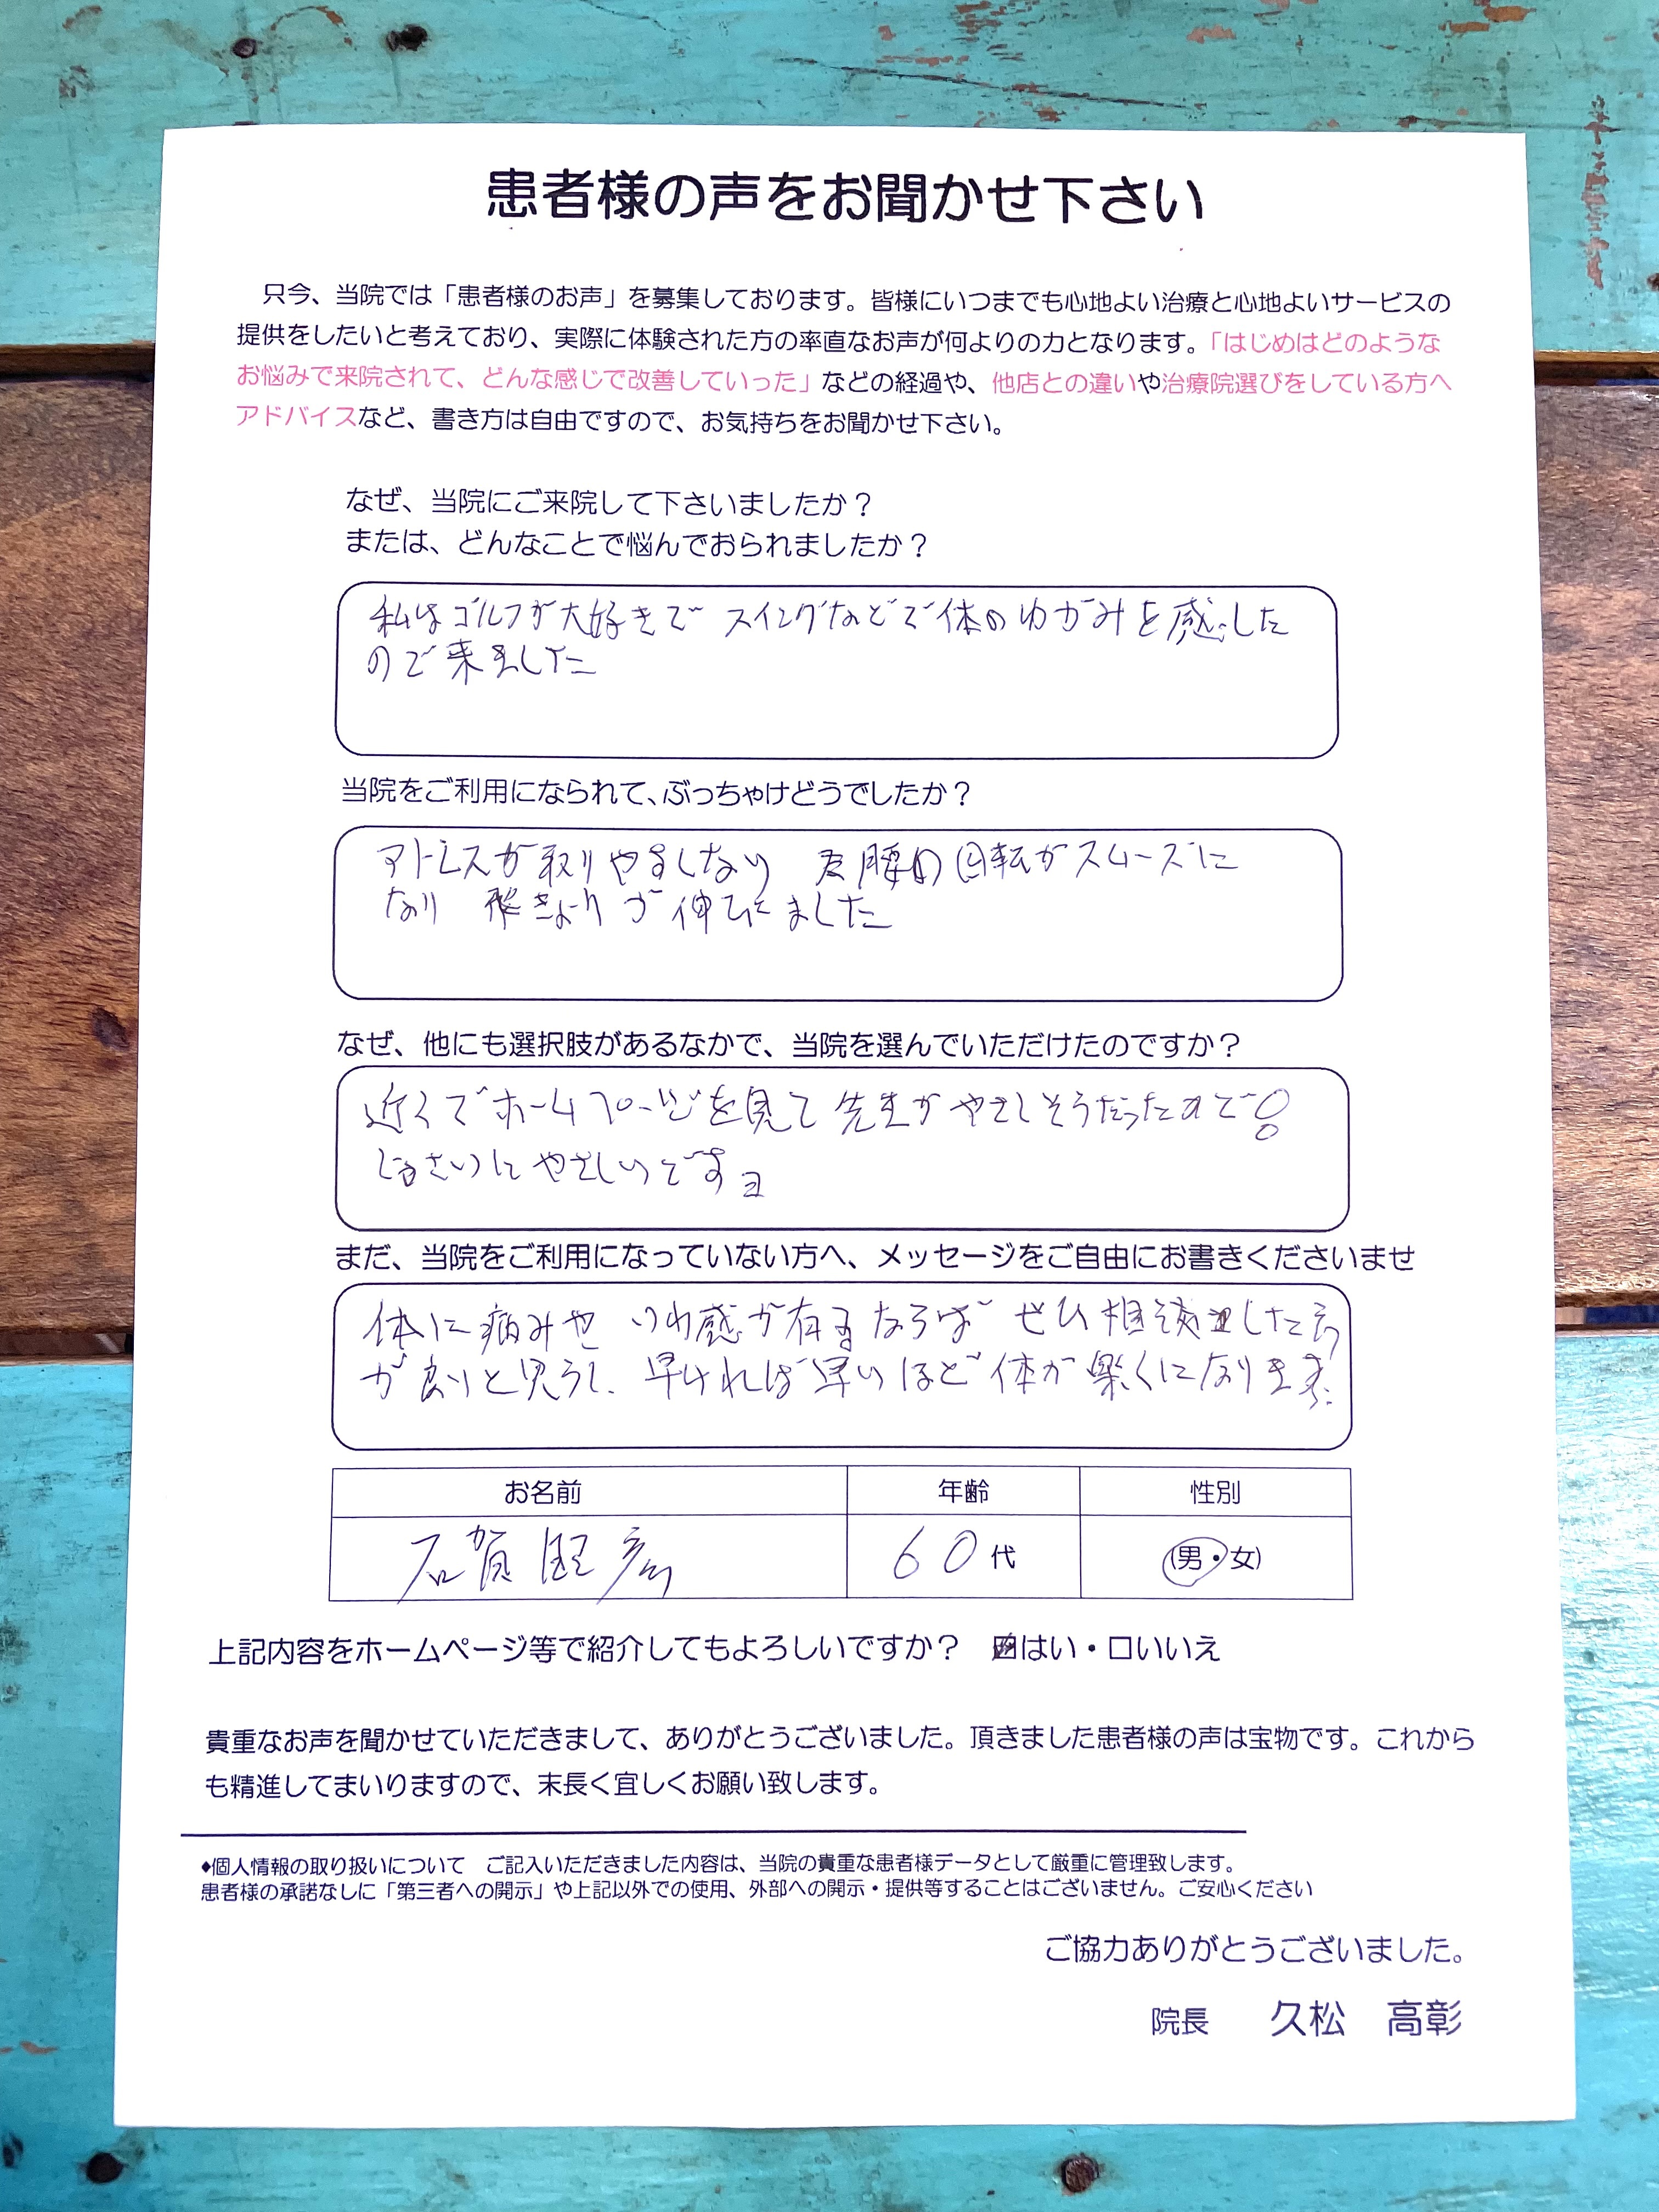 患者様の声をお聞かせ下さい
只今、当院では「患者様のお声」を募集しております。皆様にいつまでも心地よい治療と心地よいサービスの
提供をしたいと考えており、実際に体験された方の率直なお声が何よりの力となります。「はじめはどのような
お悩みで来院されて、どんな感じで改善していった」などの経過や、他店との違いや治療院選びをしている方へ
アドバイスなど、書き方は自由ですので、お気持ちをお聞かせ下さい。
なぜ、当院にご来院して下さいましたか？
または、どんなことで悩んでおられましたか？
私はゴルフが大好きで スイングなどで体のゆがみを感じした
ので来ました
当院をご利用になられて、ぶっちゃけどうでしたか？
アドレスが取りやすくなり 腰の回転がスムーズに
なり 飛きょりが伸びました
なぜ、他にも選択肢があるなかで、当院を選んでいただけたのですか？
近くでホームページを見て先生がやさしそうだったので!
じっさいにやさしいですヨ
まだ、当院をご利用になっていない方へ、メッセージをご自由にお書きくださいませ
体に痛みや いわ感が有るならば ぜひ相談したほう
が良いと思うし、早ければ早いほど体が楽くになります。
お名前 年齢 性別
賀 60代 (男・女)
上記内容をホームページ等で紹介してもよろしいですか？ ☑はい・□いいえ
貴重なお声を聞かせていただきまして、ありがとうございました。頂きました患者様の声は宝物です。これから
も精進してまいりますので、末長く宜しくお願い致します。
♦個人情報の取り扱いについて ご記入いただきました内容は、当院の貴重な患者様データとして厳重に管理致します。
患者様の承諾なしに「第三者への開示」や上記以外での使用、外部への開示・提供等することはございません。ご安心ください
ご協力ありがとうございました。
院長 久松 高彰